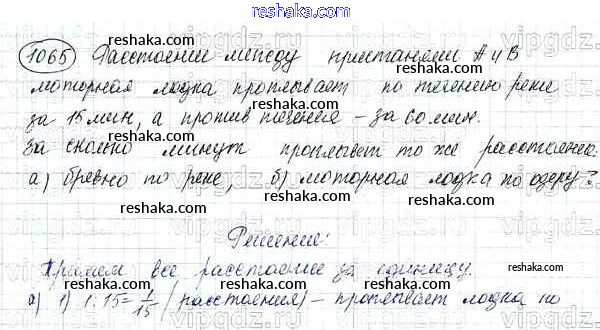 1065 Расстояние между пристанями А и В
моторная лодка проплывает по течению реки
за 15 мин, а против течения – за 60 мин.
За сколько минут проплывет то же расстояние:
а) бревно по реке, б) моторная лодка по озеру?
Решение:
Примем все расстояние за единицу.
а) 1) 1:15=1/15 (расстояния) – проплывает лодка по
reshaka.com